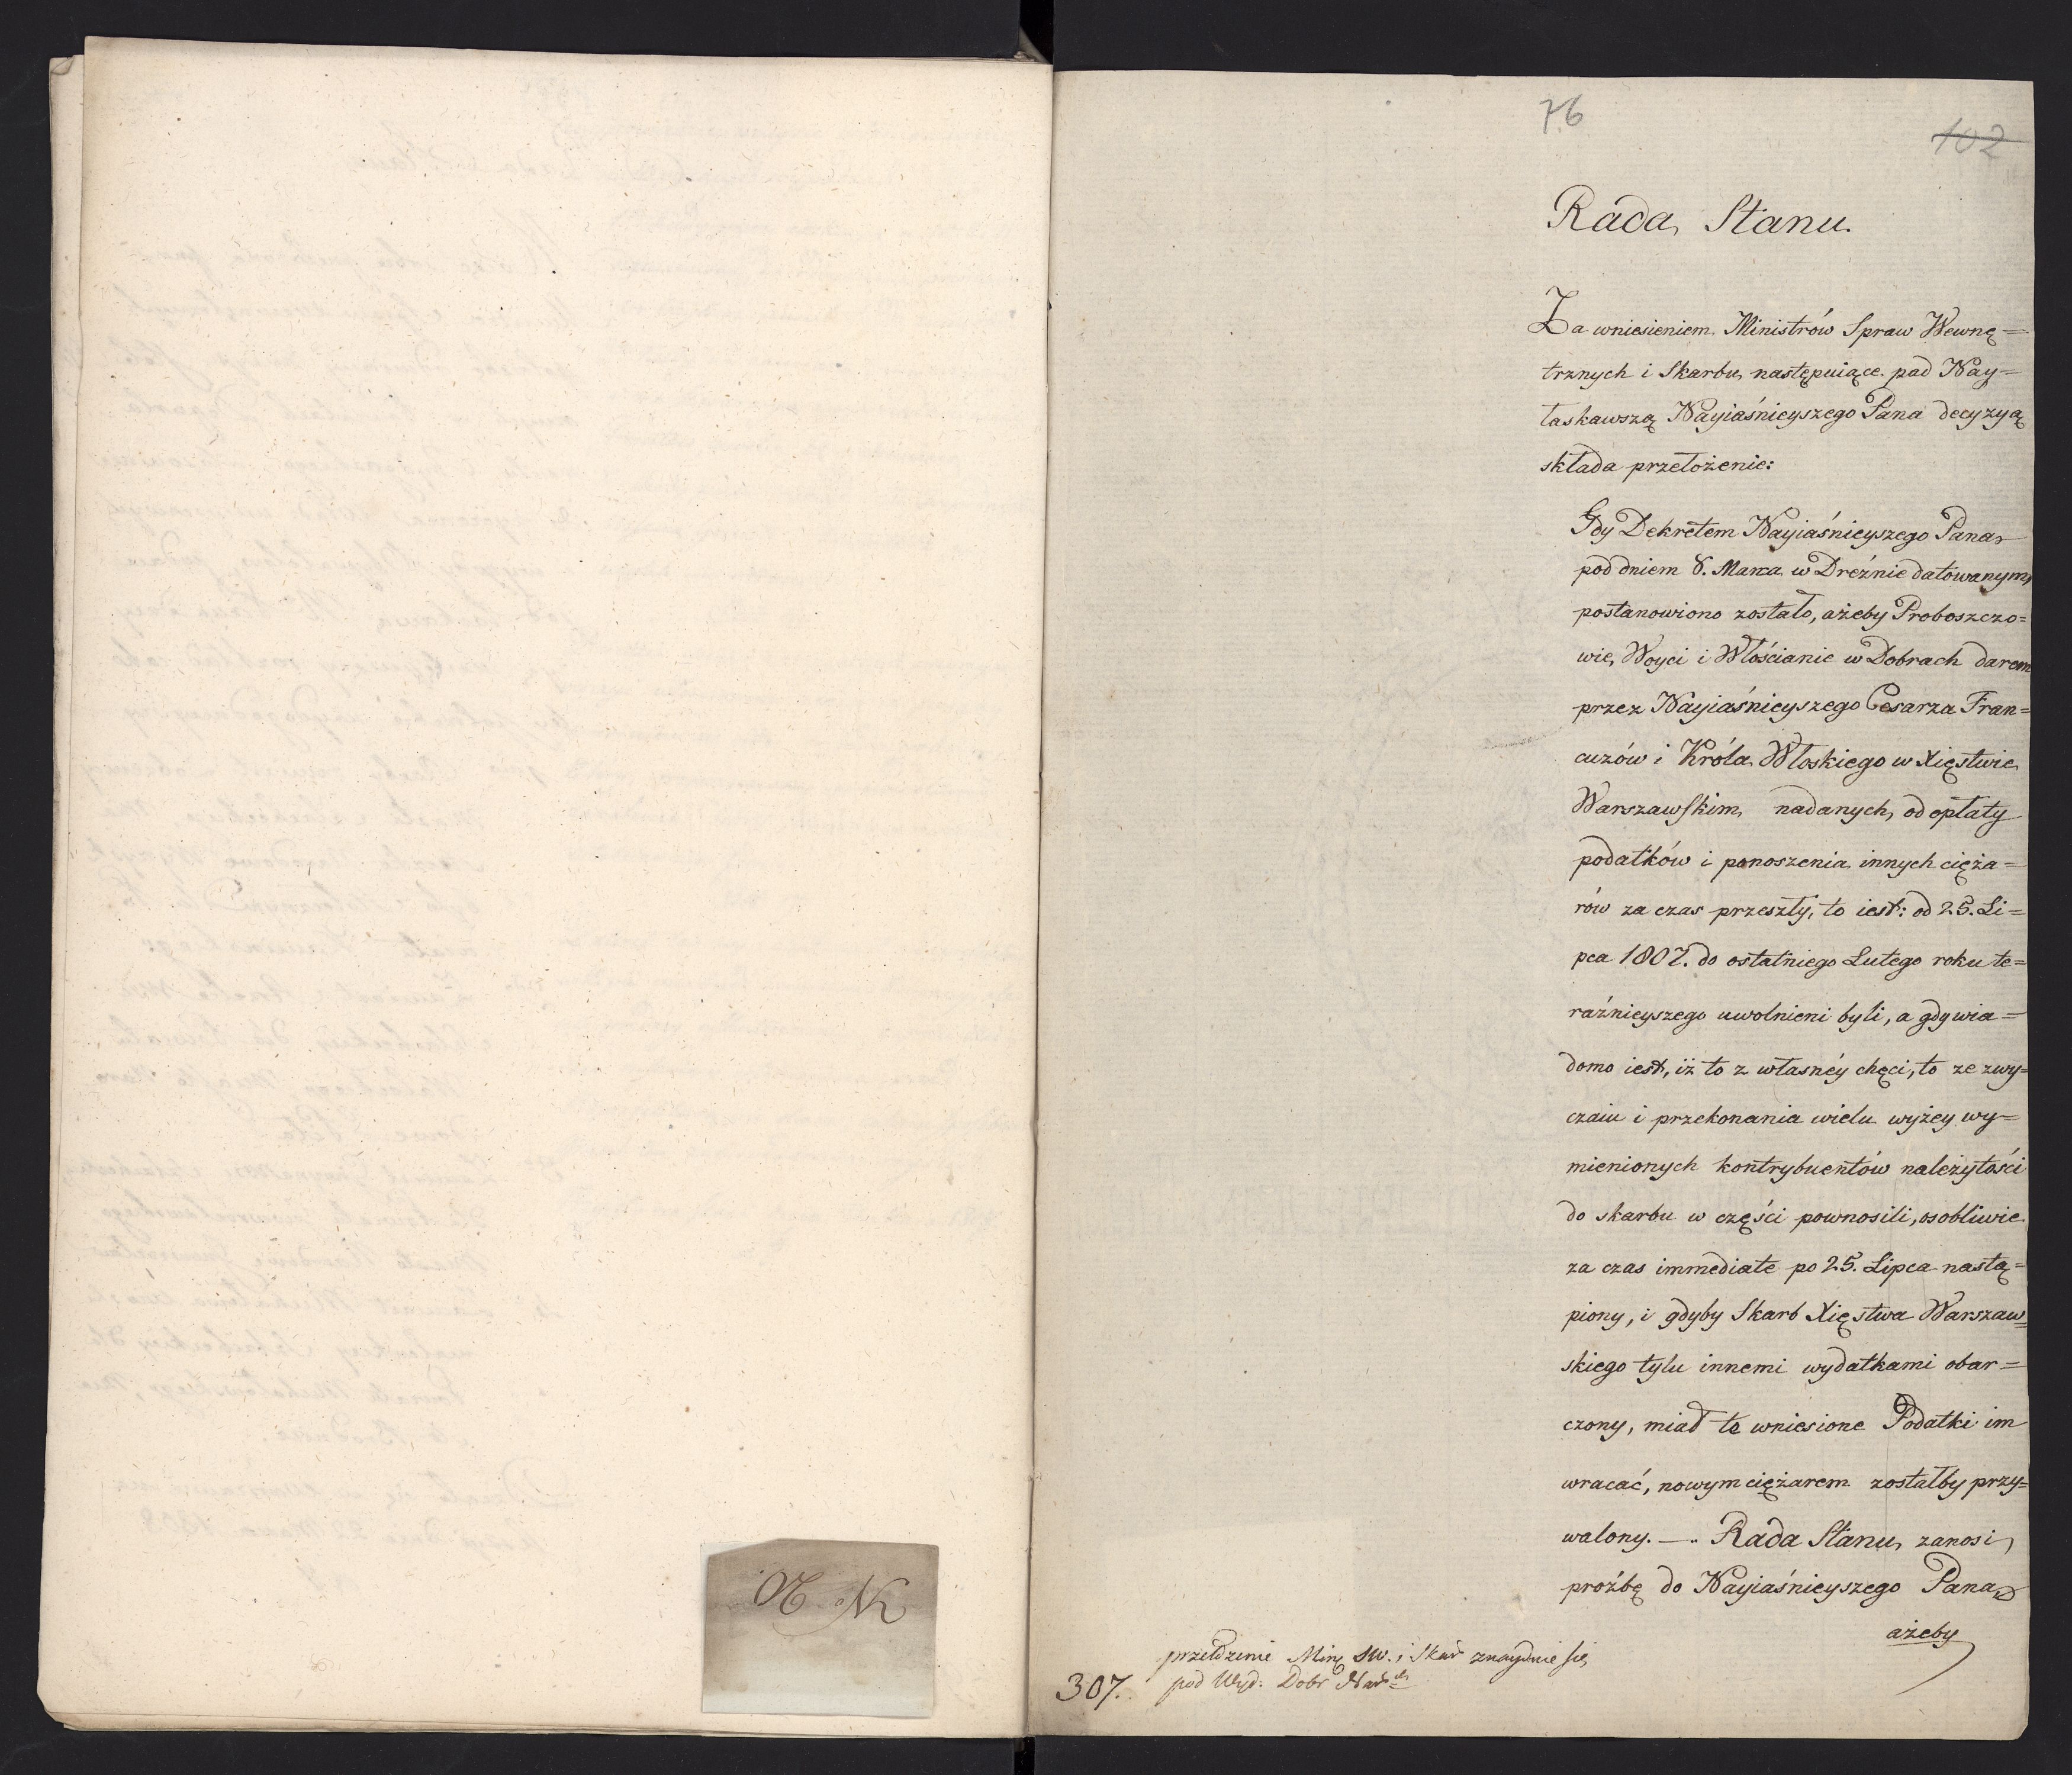 76
102
Rada Stanu.
Za wniesieniem Ministrów Spraw Wewnę=
trznych i Skarbu, następuiące pod Nay=
łaskawszą Nayiaśnieyszego Pana decyzyą
składa przełożenie:
Gdy Dekretem Nayiaśnieyszego Pana
pod dniem 8. Marca w Dreźnie datowanym,
postanowiono zostało, ażeby Proboszczo=
wie, Woyci i Włościanie w Dobrach darem
przez Nayiaśnieyszego Cesarza Fran=
cuzów i Króla Włoskiego w Xięstwie
Warszawskim nadanych, od opłaty
podatków i ponoszenia innych cięża=
rów za czas przeszły, to iest: od 25. Li=
pca 1807. do ostatniego Lutego roku te=
raźnieyszego uwolnieni byli, a gdy wia=
domo iest, iż to z własnéy chęci, to ze zwy=
czaiu i przekonania wielu wyżey wy=
mienionych kontrybuentów należytości
do skarbu w części pownosili, osobliwie
za czas immediate po 25. Lipca nastą=
piony, i gdyby Skarb Xięstwa Warszaw=
skiego tylu innemi wydatkami obar=
czony, miał te wniesione Podatki im
wracać, nowym ciężarem zostałby przy=
walony. —.. Rada Stanu zanosi
proźbę do Nayiaśnieyszego Pana
ażeby
Min SW. i Skar znayduie się
307. pod Wyd: Dobr